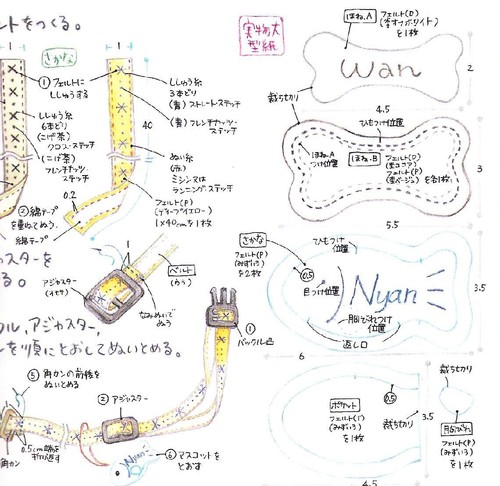 ントをつくる。
さかな
1
1
① フェルトに
ししゅうする
ししゅう糸
6本どり
(こげ茶)
クロス・ステッチ
(こげ茶)
フレンチナッツ・
ステッチ
ししゅう糸
3本どり
(青)ストレート・ステッチ
(青)フレンチナッツ・
ステッチ
40
ぬい糸
(赤)
ミシンまたは
ランニング・ステッチ
フェルト(P)
1×40cmを1枚
0.2
②綿テープ
を重ねてぬう。
綿テープ
スターを
る。
アジャスター
(イセサ)
ベルト
(うら)
なみぬいで
ぬう
クル、アジャスター、
ンを順にとおしてぬいとめる。
①
バックル凸
⑤角カンの前後を
ぬいとめる
②アジャスター
0.5cm端を
折り返す
角カン
Nyan
⑥マスコットを
とおす
実物大
型紙
ほね.A
フェルト(O)
(オフホワイト)
を1枚
Wan
2
裁ち切り
4.5
ひもつけ位置
ほね.A
つけ位置
ほね・B
フェルト(O)
フェルト(P)
を各1枚
3
5.5
さかな
フェルト(P)
(みずいろ)
を2枚
ひもつけ
位置
0.5
目つけ位置
Nyan
3.5
胸びれつけ
位置
返し口
6
裁ち切り
ポケット
フェルト(P)
(みずいろ)
を1枚
0.5
裁ち切り
3.5
4.5
胸びれ
フェルト(P)
(みずいろ)
を1枚